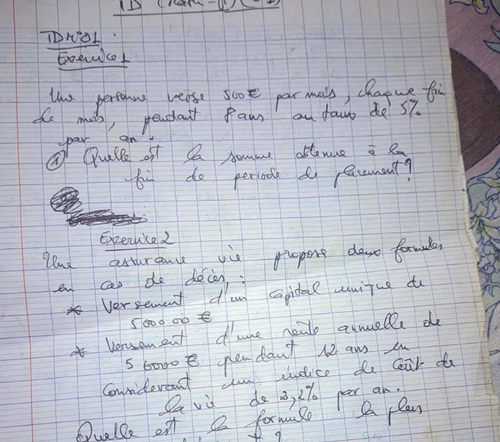 TD (Math-fi)
TD N°01.
Exercice 1
Une personne verse 500€ par mois, chaque fin
de mois, pendant 8 ans au taux de 5%
par an.
① Quelle est la somme obtenue à la
fin de periode de placement?
Exercice 2
Une assurance vie propose deux formules
en cas de décès:
* Versement d'un capital unique de
500000€
* Versement d'une rente annuelle de
56000€ pendant 12 ans en
considerant un indice de coût de
la vie de 3,2% par an.
Quelle est la formule la plus